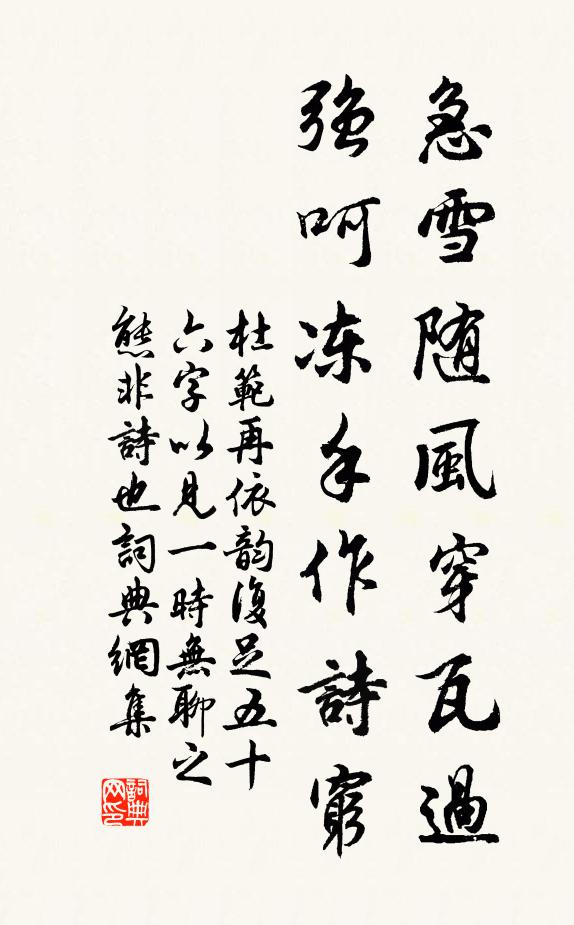 急雪随風穿瓦過
強呵凍手作詩窮
杜範再依韵復足五十
六字以見一時無聊之
態非詩也詞典網集
詞典网印